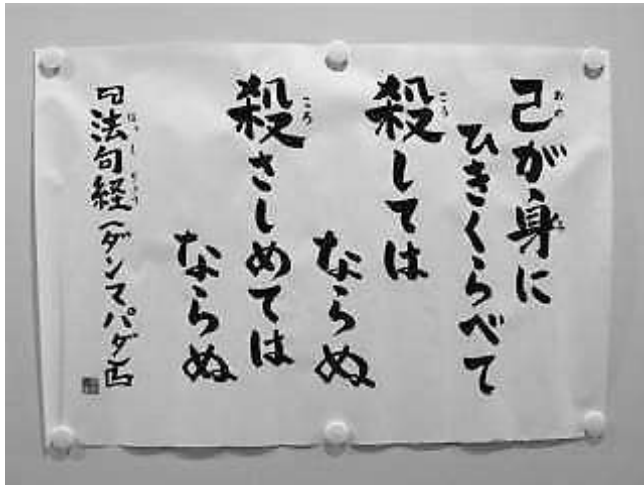 己が身に
ひきくらべて
殺しては
ならぬ
殺さしめては
ならぬ
『法句経(ダンマパダ)』